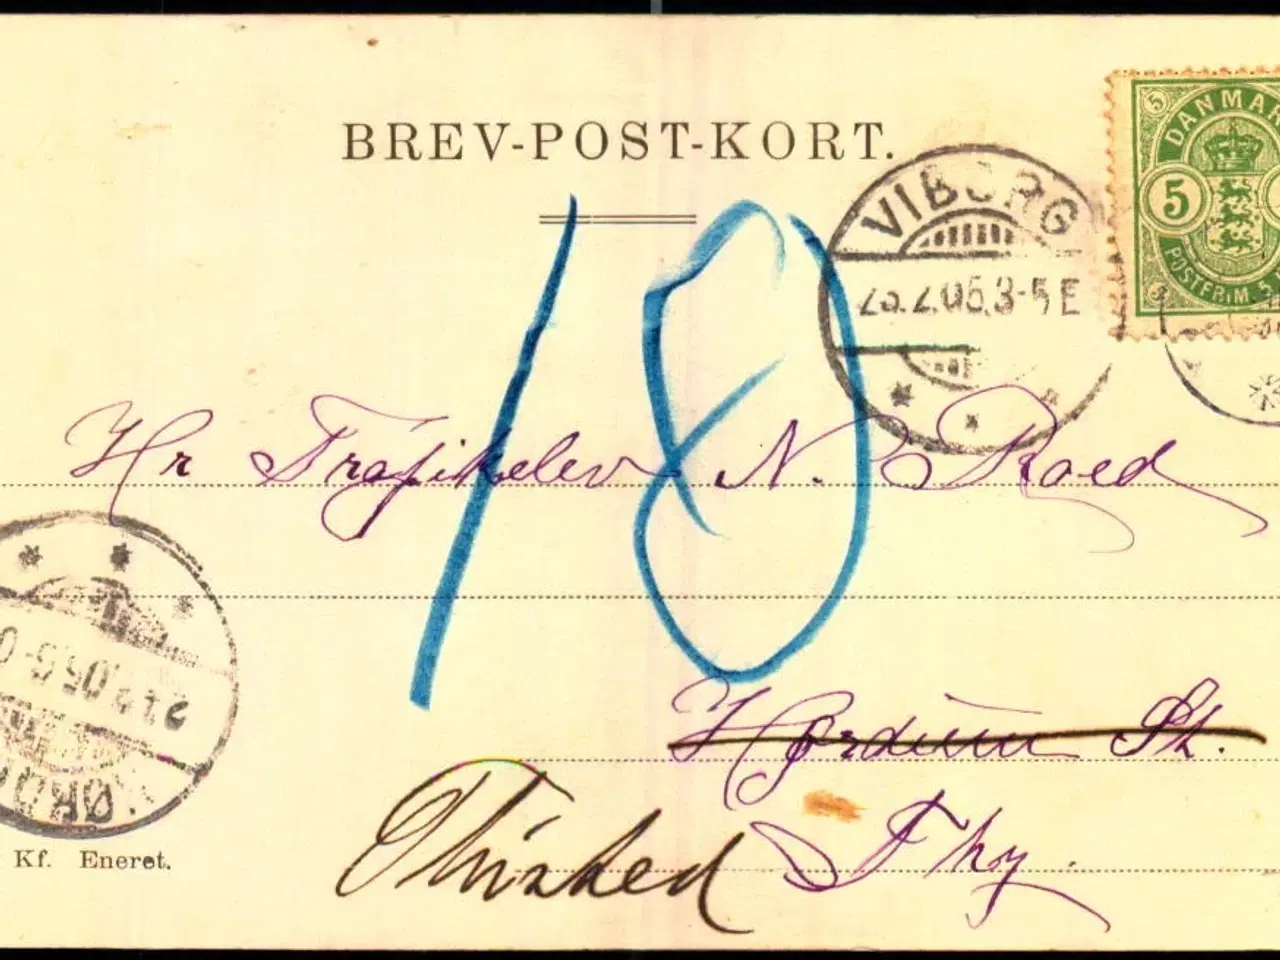 BREV-POST-KORT.
DANMAR
5
5
POSTFRIM. 5
VIBORG
23.2.05.3-5 E
18
Hr Trafikelev N. C Roed
Hørdum St.
Thisted
Thy.
Kf. Eneret.